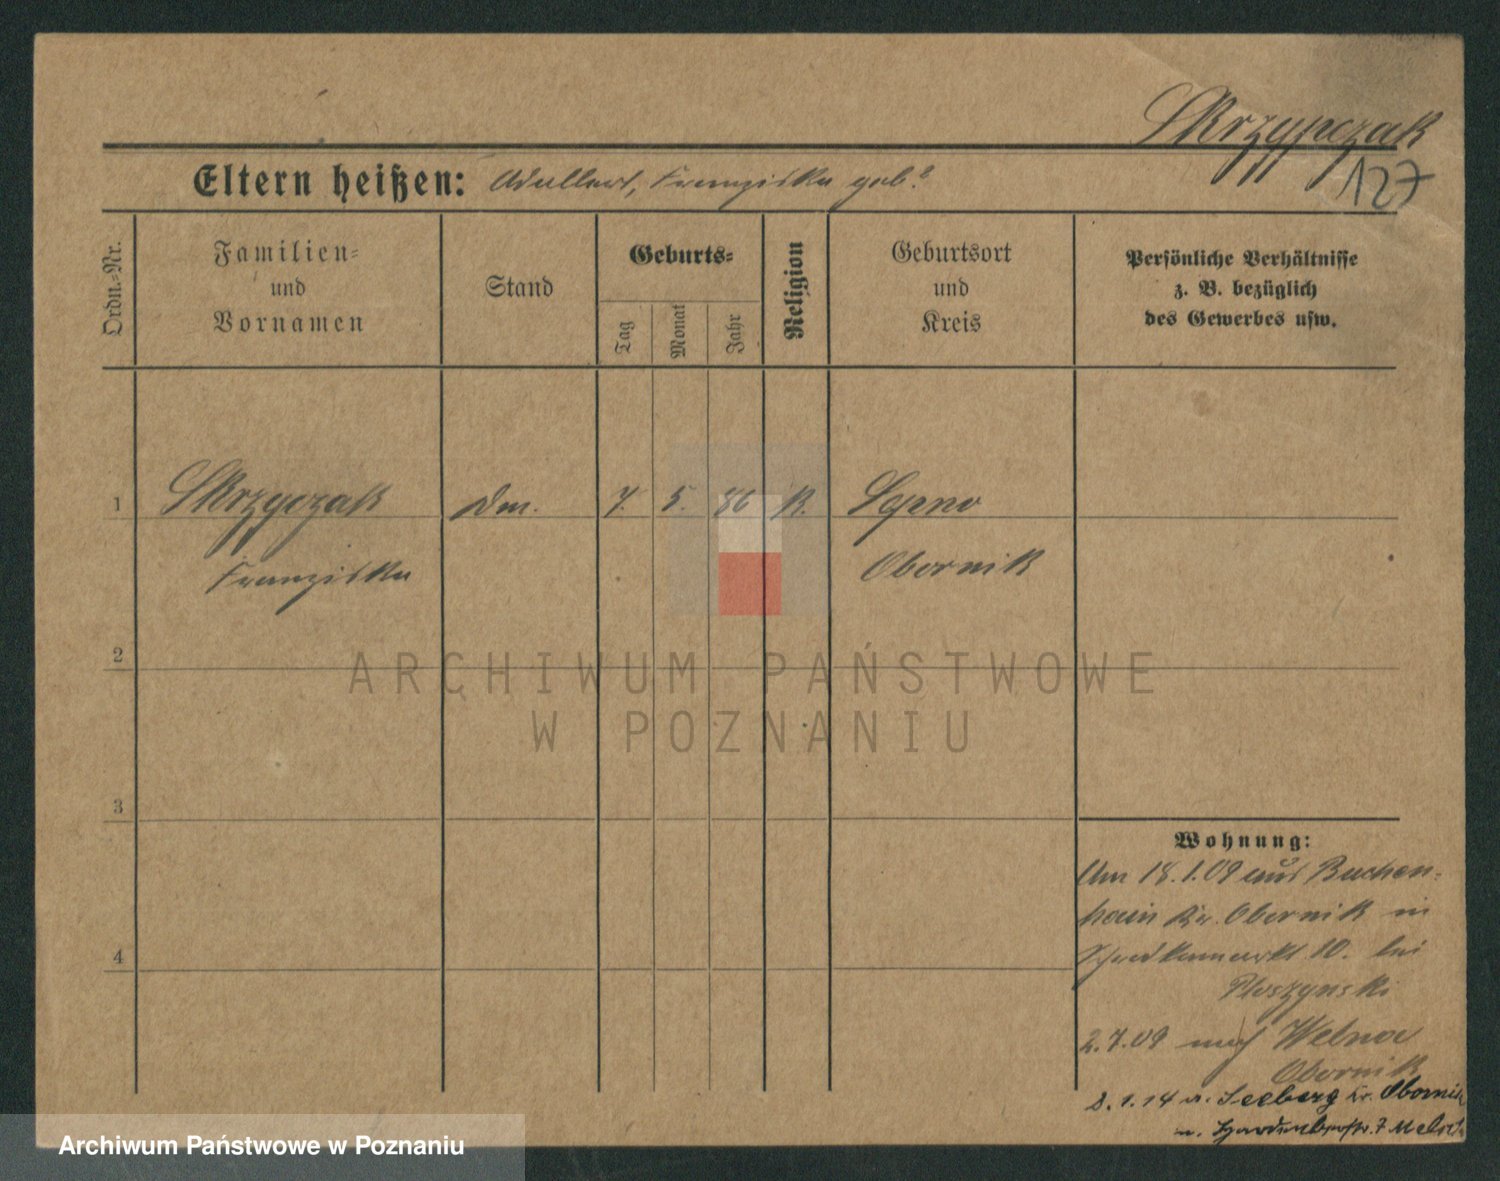 Skrzypczak
127
Eltern heißen: Adalbert, Franziska geb?
Ordn.-Nr.
Familien-
und
Vornamen
Stand
Geburts-
Tag
Monat
Jahr
Religion
Geburtsort
und
Kreis
Persönliche Verhältnisse
z. B. bezüglich
des Gewerbes usw.
1
Skrzypczak
Franziska
Dm.
7.
5.
86
K.
Obornik
2
3
4
ARCHIWUM PAŃSTWOWE
W POZNANIU
Wohnung:
Um 18.1.09 aus Buchen-
hain Kr. Obornik in
10. bei
2.7.09 nach Welna
Obornik
8.1.14 v. Seeberg Kr. Obornik
n. Hardenbergstr. 7
Archiwum Państwowe w Poznaniu